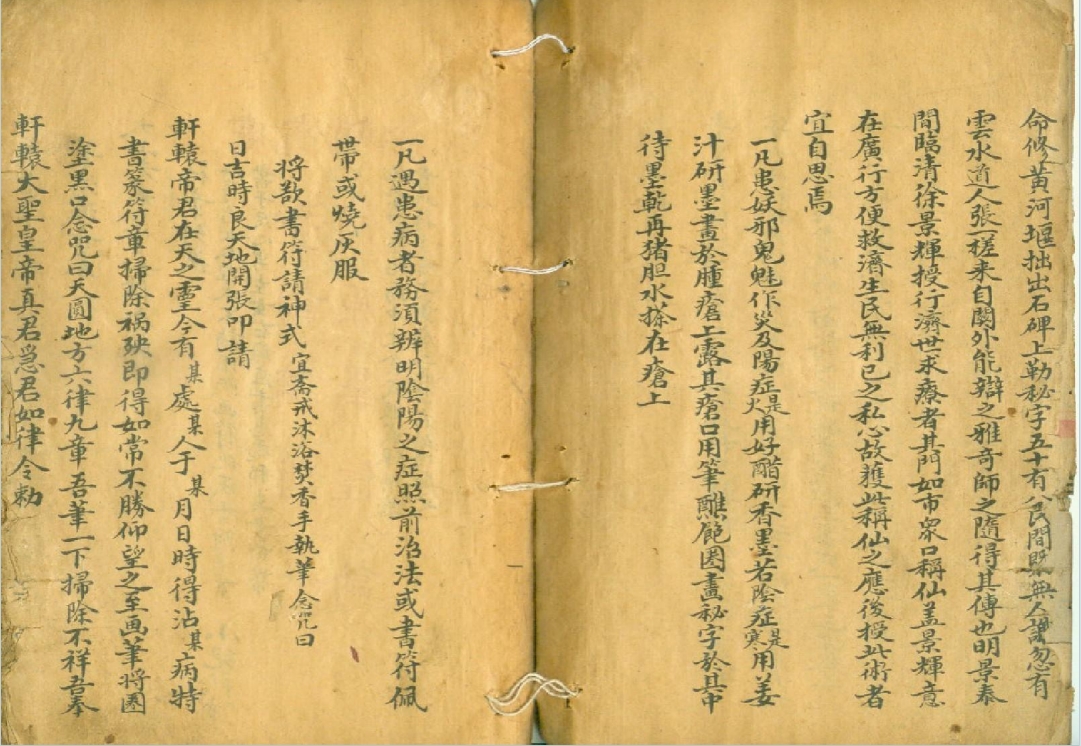 命修黄河堰拙出石碑上勒秘字五十有八民間既無人識忽有
雲水道人張一槎来自関外能辯之雅奇師之隨得其傳也明景泰
間臨清徐景輝授行濟世求療者其門如市衆口稱仙盖景輝意
在廣行方便救濟生民無利己之私心故獲此稱仙之應後授此術者
宜自思焉
一凡患妖邪鬼魅作災及陽症是火用好醋研香墨若陰症是寒用姜
汁研墨畫於腫瘡上露其瘡口用筆蘸範圏畫秘字於其中
待墨乾再猪胆水搽在瘡上
一凡遇患病者務須辨明陰陽之症照前治法或書符佩
帶或燒灰服
將欲書符請神式 宜齋戒沐浴焚香手執筆念咒曰
日吉時良天地開張叩請
軒轅帝君在天之靈今有某處某人于某月日時得沾某病特
書篆符章掃除禍殃即得如常不勝仰望之至画筆將圏
塗黑口念咒曰天圓地方六律九章吾筆一下掃除不祥吾奉
軒轅大聖皇帝真君急君如律令勅